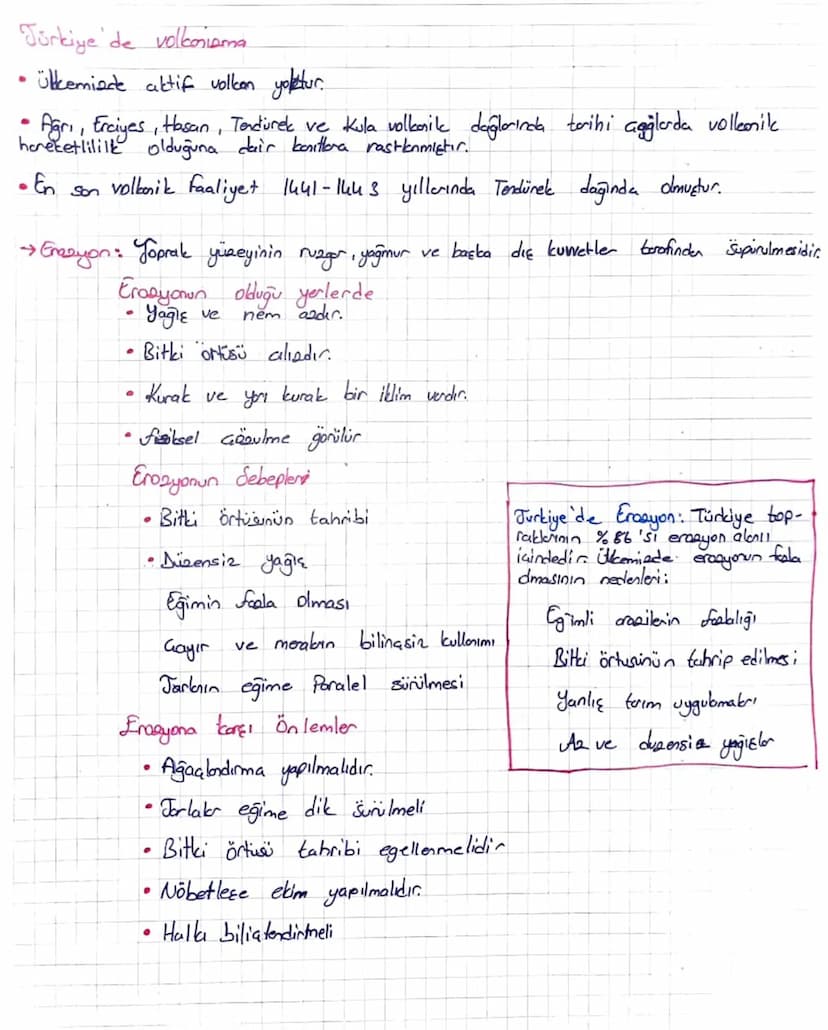 Türkiye'de volkanizma
• Ülkemizde aktif volkan yoktur.
• Ağrı, Erciyes, Hasan, Tendürek ve Kula volkanik dağlarında tarihi çağlarda volkanik
hareketlilik olduğuna dair kanıtlara rastlanmıştır.
• En son volkanik faaliyet 1441-1443 yıllarında Tendürek dağında olmuştur.
→ Erozyon: Toprak yüzeyinin rüzgar, yağmur ve başka dış kuvvetler tarafından süpürülmesidir.
Erozyonun olduğu yerlerde
• Yağış ve nem azdır.
• Bitki örtüsü cılızdır.
• Kurak ve yarı kurak bir iklim vardır.
• fiziksel çözülme görülür
Erozyonun Sebepleri
• Bitki örtüsünün tahribi
• Düzensiz yağış
Eğimin fazla olması
Çayır ve meraların bilinçsiz kullanımı
Tarlanın eğime Paralel sürülmesi
Erozyona karşı Önlemler
• Ağaçlandırma yapılmalıdır.
• Tarlalar eğime dik sürülmeli
• Bitki örtüsü tahribi egellenmelidir
• Nöbetleşe ekim yapılmalıdır.
• Halkı bilinçlendirilmeli
Türkiye'de Erozyon: Türkiye top-
raklarının %86'sı erozyon alanı
içindedir. Ülkemizde erozyonun fazla
olmasının nedenleri:
Eğimli arazilerin fazlalığı
Bitki örtüsünün tahrip edilmesi
Yanlış tarım uygulamaları
Az ve düzensiz yağışlar